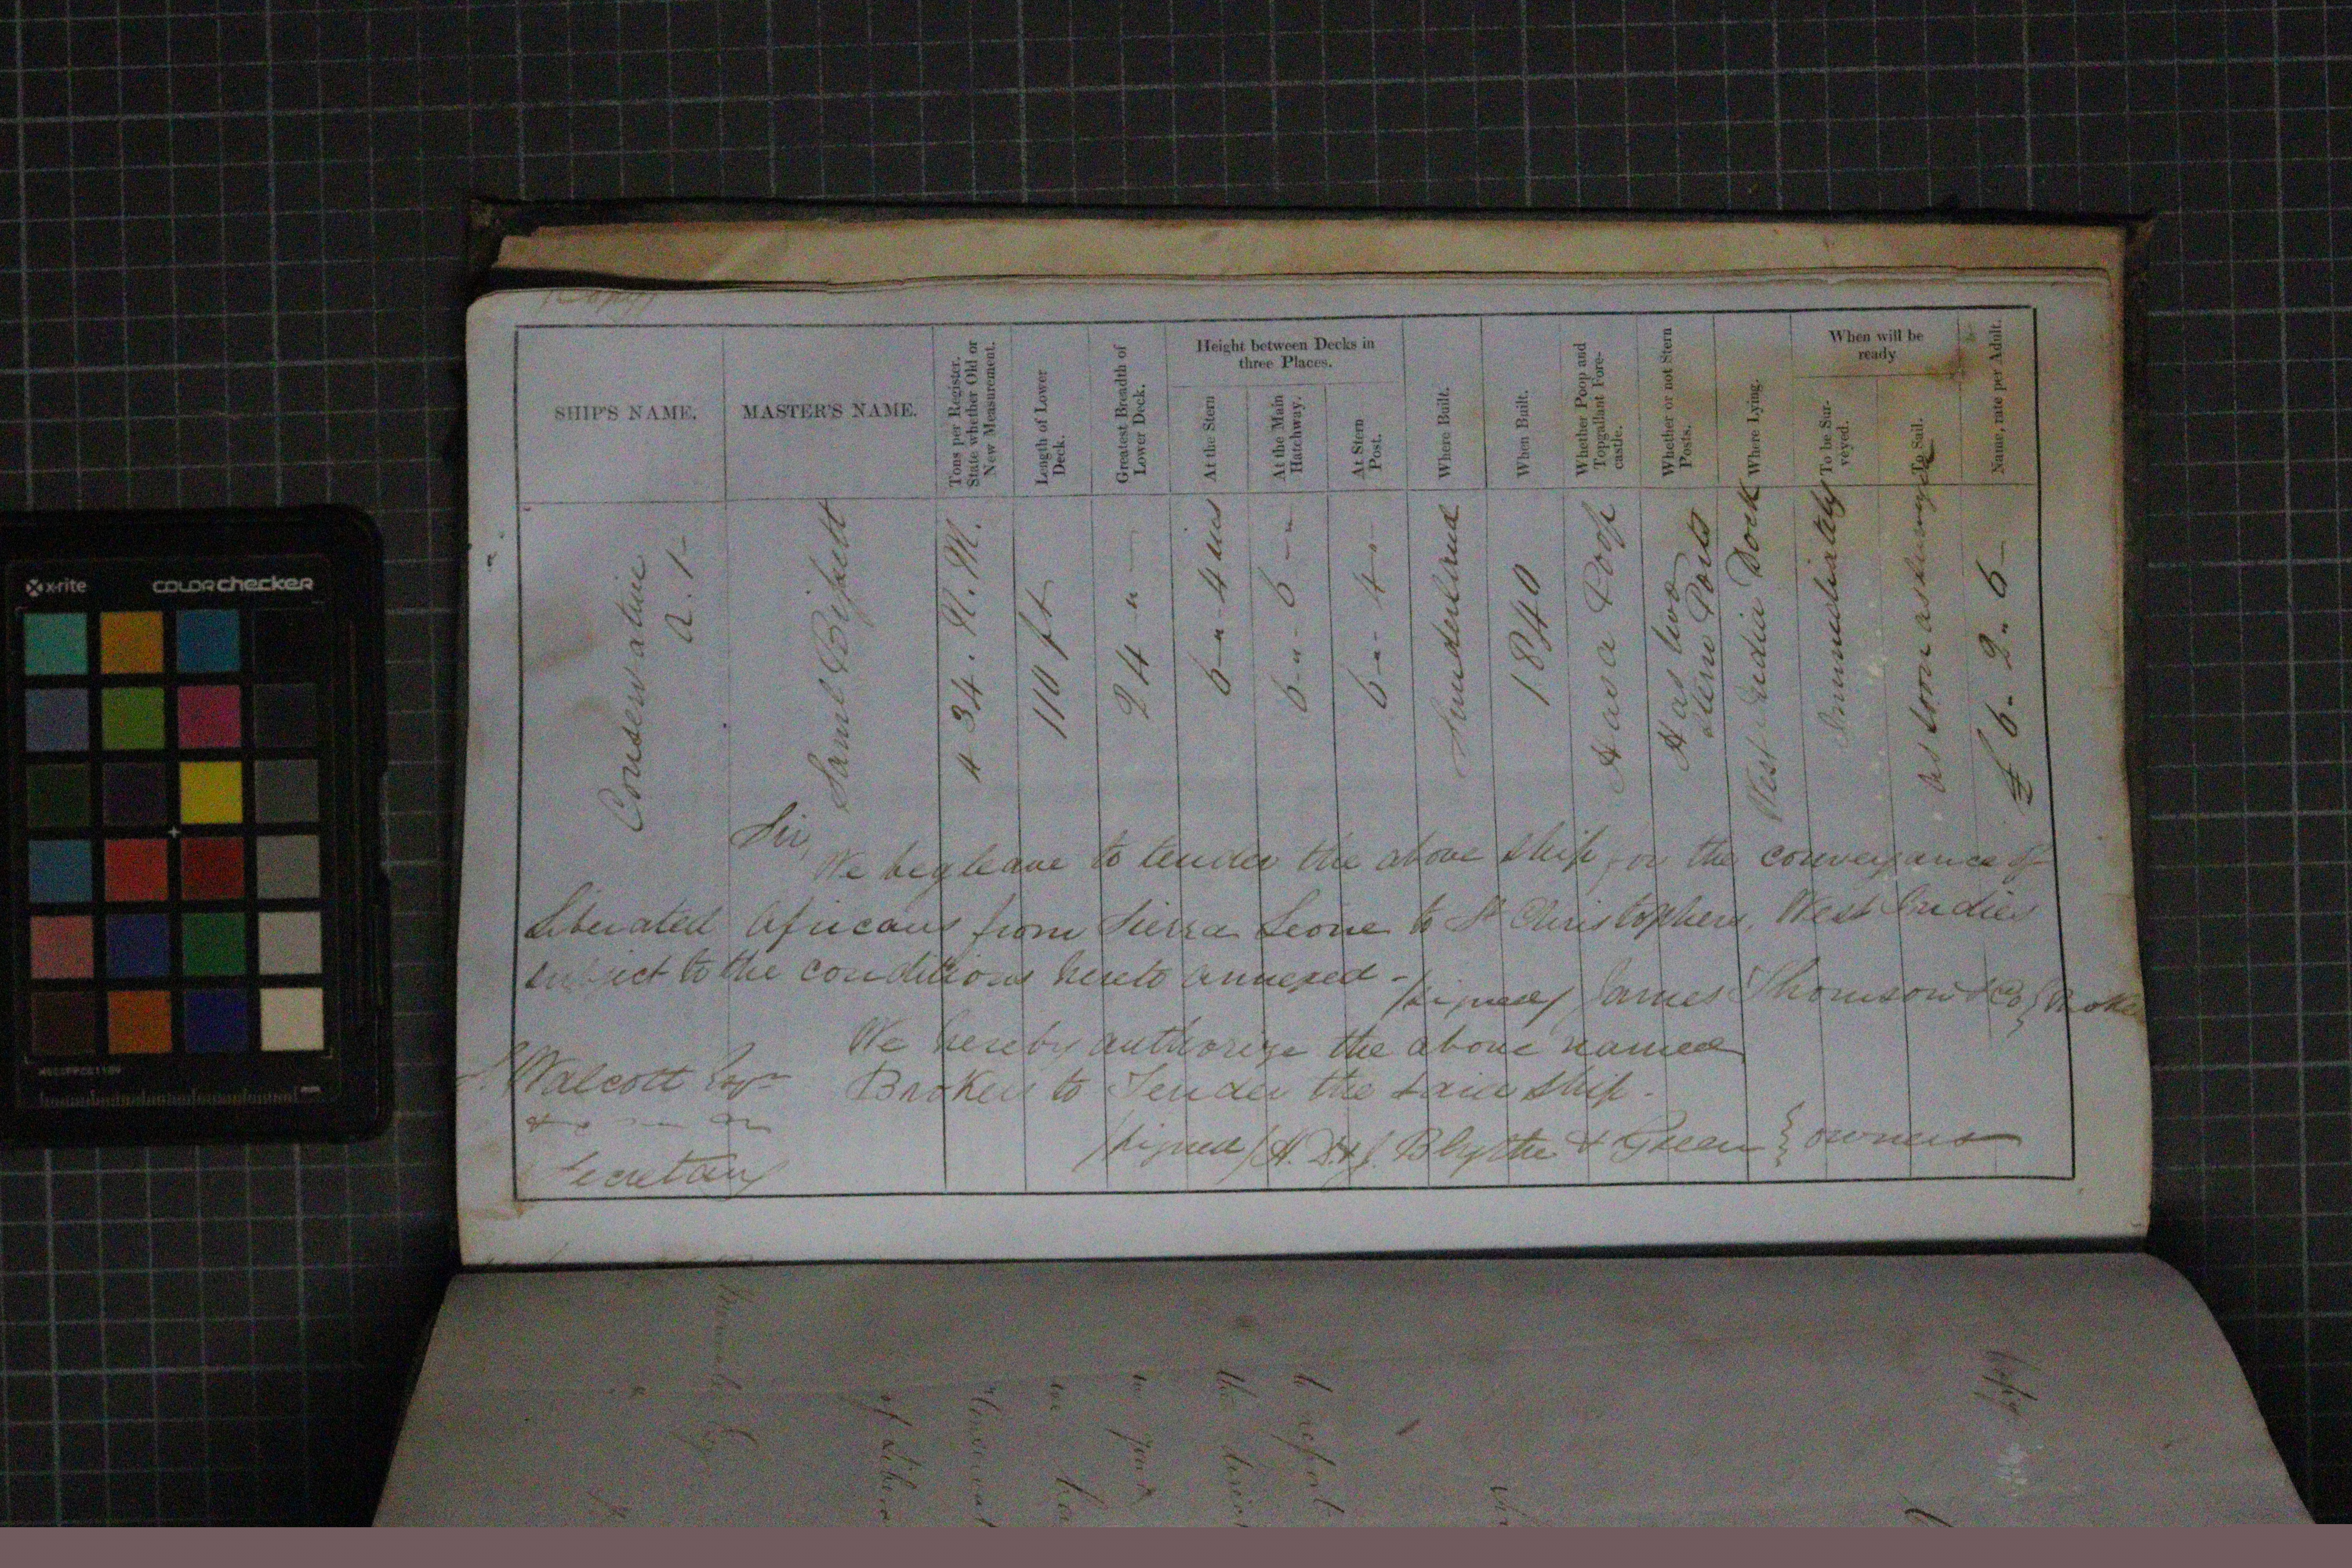 (Copy)
SHIP'S NAME.
MASTER'S NAME.
Tons per Register.
State whether Old or
New Measurement.
Length of Lower
Deck.
Greatest Breadth of
Lower Deck.
Height between Decks in
three Places.
At the Stern
At the Main
Hatchway.
At Stern
Post.
Where Built.
When Built.
Whether Poop and
Topgallant Fore-
castle.
Whether or not Stern
Posts.
Where Lying.
When will be
ready
To be Sur-
veyed.
To Sail.
Name, rate per Adult.
Conservative
A.1-
Saml
434. N. M.
110 ft
24 " -
6-"-4 ins
6-"-6-"
6-"-4-
Sunderland
1840
Has a Poop
Has two
Stern Ports
West India Dock
Immediately
As soon as
£6-2-6-
Sir,
We beg leave to tender the above Ship for the conveyance of
Liberated Africans from Sierra Leone to St Christophers, West Indies
subject to the conditions hereto annexed -
/signed/ James Thomson & Co }
We hereby authorize the above named
S. Walcott Esqr
Brokers to Tender the said Ship.
/signed/ H. D. & J. Blythe & Green } owners
Secretary
x-rite
COLORchecker
Copy
to report
the
in
we
of